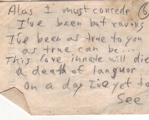 Alas I must concede
I've been but
I've been as true to you
as true can be....
This love innate will die
a death of languor
on a day I've yet to
See